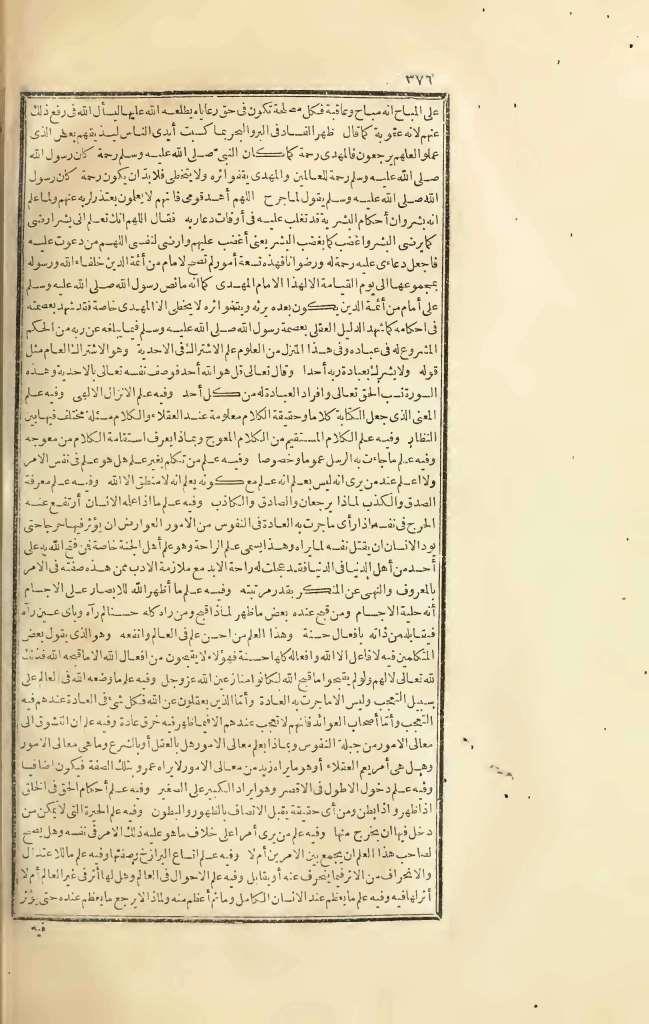 ٣٧٦
على المباح انه مباح وعاقبة فكل مصلحة تكون فى حق رعاياه يطلعه الله عليها ليسأل الله فى رفع ذلك
عنهم لانه عقوبة كما قال ظهر الفساد فى البر والبحر بما كسبت أيدى الناس ليذيقهم بعض الذى
عملوا لعلهم يرجعون فالمهدى رحمة كما كان النبىّ صلى الله عليه وسلم رحمة كان رسول الله
صلى الله عليه وسلم رحمة للعالمين والمهدى يقفو اثره ولا يخطى فلا بدّ ان يكون رحمة كان رسول
الله صلى الله عليه وسلم يقول لما جرح اللهم أهد قومى فانهم لا يعلمون يعتذر لربه عنهم ولما علم
انه بشر وان أحكام البشرية قد تغلب عليه فى أوقات دعا ربه فقال اللهم انك تعلم انى بشر ارضى
كما يرضى البشر واغضب كما يغضب البشر يعنى أغضب عليهم وارضى لنفسى اللهم من دعوت عليه
فاجعل دعاءى عليه رحمة له ورضوانا فهذه تسعة أمور لم تصح لامام من أئمة الدين خلفاء الله ورسوله
بمجموعها الى يوم القيامة الا لهذا الامام المهدى كما انه ما نص رسول الله صلى الله عليه وسلم
على امام من أئمة الدين يكون بعده يرثه ويقفو اثره لا يخطى الا المهدى خاصة فقد شهد بعصمته
فى احكامه كما شهد الدليل العقلى بعصمة رسول الله صلى الله عليه وسلم فيما يبلغه عن ربه من الحكم
المشروع له فى عباده وفى هذا المنزل من العلوم علم الاشتراك فى الاحدية وهو الاشتراك العام مثل
قوله ولا يشرك بعبادة ربه أحدا وقال تعالى قل هو الله أحد فوصف نفسه تعالى بالاحدية وهذه
السورة نسب الحق تعالى وافراد العبادة له من كل أحد وفيه علم الانزال الالهى وفيه علم
المعنى الذى جعل الكتابة كلاما وحقيقة الكلام معلومة عند العقلاء والكلام مسئلة مختلف فيها بين
النظار وفيه علم الكلام المستقيم من الكلام المعوج وبماذا يعرف استقامة الكلام من معوجه
وفيه علم ما جاءت به الرسل عموما وخصوصا وفيه علم من تكلم بغير علم هل هو علم فى نفس الامر
ولا علم عند من يرى انه ليس بعلم انه علم مع كونه يعلم انه لا منطق الا الله وفيه علم معرفة
الصدق والكذب لماذا يرجعان والصادق والكاذب وفيه علم ما اذا علمه الانسان أرتفع عنه
الحرج فى نفسه اذا رأى ما جرت به العادة فى النفوس من الامور العوارض ان يؤثر فيها حرجا حتى
يود الانسان ان يقتل نفسه لما يراه وهذا يسمى علم الراحة وهو علم أهل الجنة خاصة فمن فتح الله به على
أحد من أهل الدنيا فى الدنيا فقد عجلت له راحة الابد مع ملازمة الادب ممن هذه صفته فى الامر
بالمعروف والنهى عن المنكر بقدر مرتبته وفيه علم ما أظهر الله للابصار على الاجسام
أنه حلية الاجسام ومن قبح عنده بعض ما ظهر لماذا قبح ومن راه كله حسنا لم رآه وباى عين رآه
فيقابله من ذاته بافعال حسنة وهذا العلم من احسن علم فى العالم وانفعه وهو الذى يقول بعض
المتكلمين فيه لا فاعل الا الله وافعاله كلها حسنة فهؤلاء لا يقبحون من افعال الله الا ما قبحه الله فذلك
لله تعالى لا لهم ولو لم يقبحوا ما قبح الله لكانوا منازعين الله عز وجل وفيه علم ما وضعه الله فى العالم على
سبيل التعجب وليس الا ما جرت به العادة وأمّا الذين يعقلون عن الله فكل شئ فى العادة عندهم فيه
التعجب وأمّا أصحاب العوائد فانهم لا تعجب عندهم الا فيما ظهر فيه خرق عادة وفيه علم ان التشوّق الى
معالى الامور من جبلة النفوس وبماذا يعلم معالى الامور هل بالعقل أو بالشرع وما هى معالى الامور
وهل هى أمر يعم العقلاء أو هو ما يراه زيد من معالى الامور لا يراه عمرو بتلك الصفة فيكون اضافيا
وفيه علم دخول الاطول فى الاقصر وهو ايراد الكبير على الصغير وفيه علم أحكام الحق فى الخلق
اذا ظهر واذا بطن ومن أى حقيقة يقبل الاتصاف بالظهور والبطون وفيه علم الحيرة التى لا يمكن من
دخل فيها ان يخرج منها وفيه علم من يرى أمرا على خلاف ما هو عليه ذلك الامر فى نفسه وهل يصح
لصاحب هذا العلم ان يجمع بين الامرين أم لا وفيه علم اتساع البرازخ وضيقها وفيه علم ما للاعتدال
والانحراف من الاثر فيما ينحرف عنه أو يقابل وفيه علم الاحوال فى العالم وهل لها أثر فى غير العالم أم لا
أثر لها فيه وفيه علم ما يعظم عند الانسان الكامل وما ثم أعظم منه ولماذا يرجع ما يعظم عنده حتى يؤثر
فيه